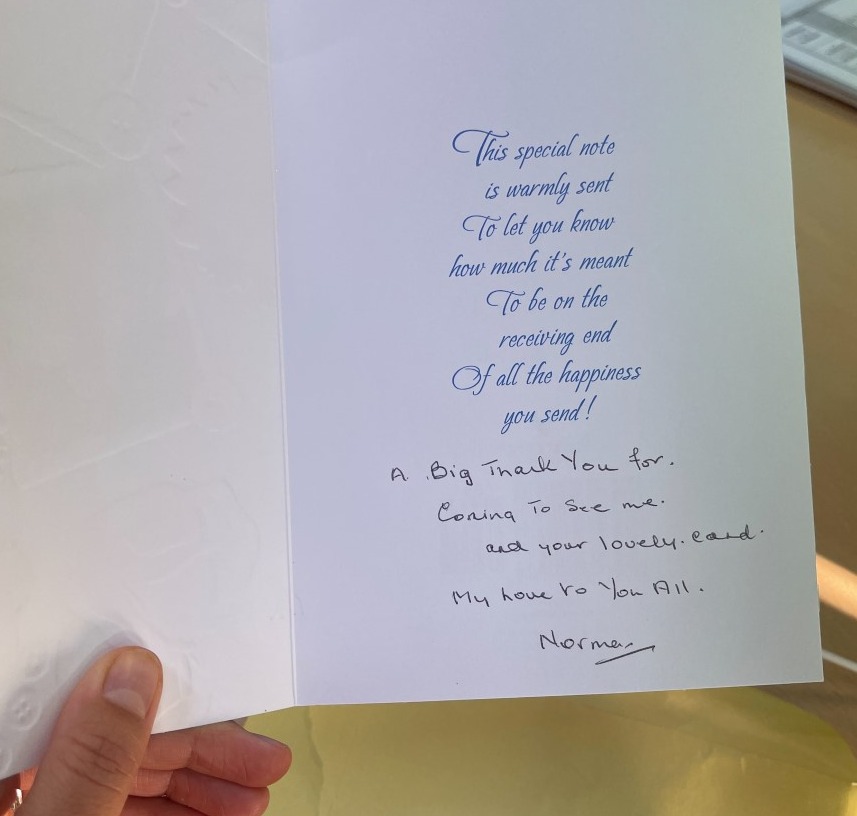 This special note
is warmly sent
To let you know
how much it's meant
To be on the
receiving end
Of all the happiness
you send!
A Big Thank You for.
Coming To See me.
and your lovely card.
My Love to You All.
Norman